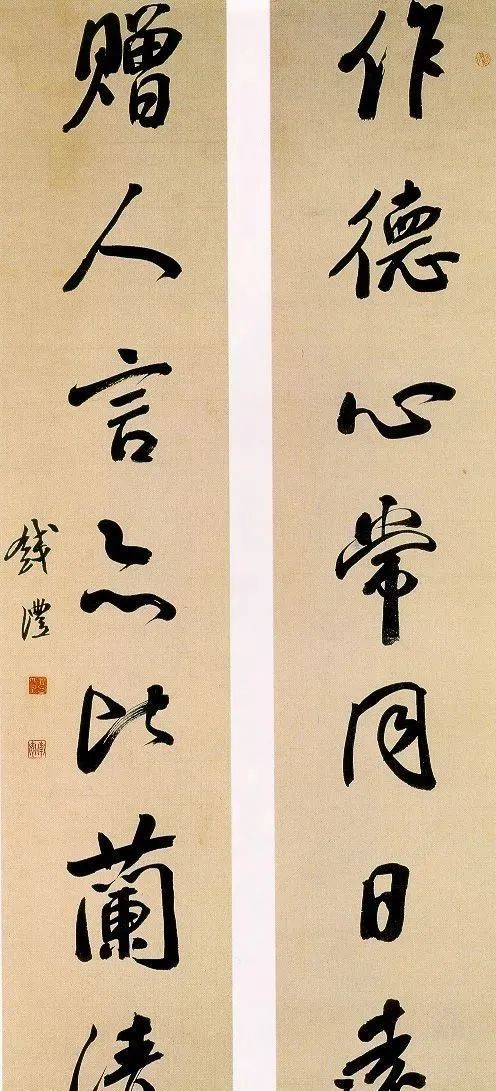 作德心常同日
贈人言亦比蘭清
錢灃